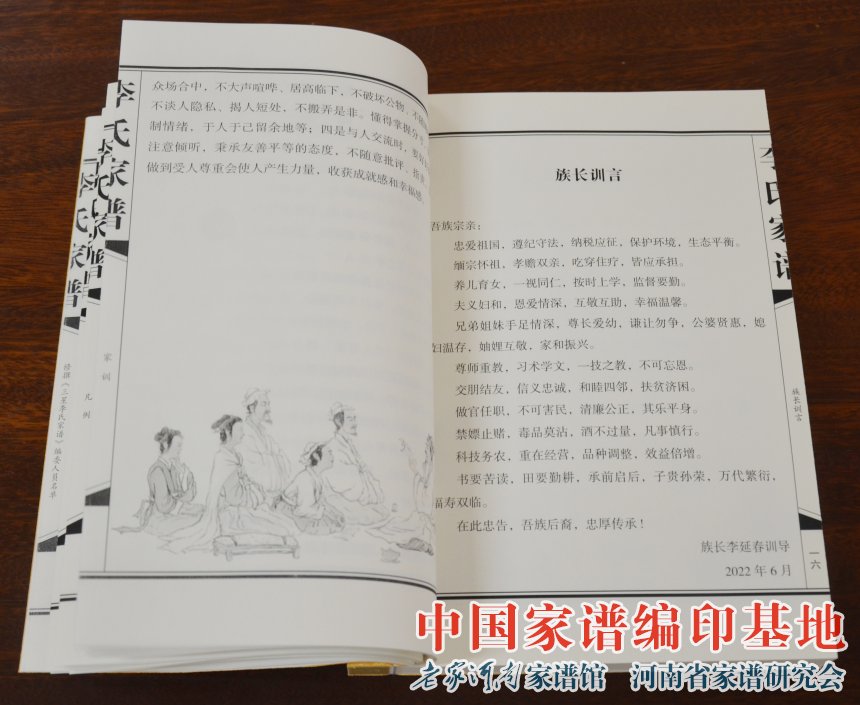 众场合中，不大声喧哗、居高临下，不破坏公物，不随
不谈人隐私、揭人短处，不搬弄是非。懂得掌握分寸
制情绪，于人于己留余地等；四是与人交流时，要
注意倾听，秉承友善平等的态度，不随意批评、指责
做到受人尊重会使人产生力量，收获成就感和幸福感。
李氏家谱
李氏家谱
李氏家谱
家训
凡例
修撰《三星李氏家谱》编委人员名单
族长训言
吾族宗亲：
忠爱祖国，遵纪守法，纳税应征，保护环境，生态平衡。
缅宗怀祖，孝赡双亲，吃穿住疗，皆应承担。
养儿育女，一视同仁，按时上学，监督要勤。
夫义妇和，恩爱情深，互敬互助，幸福温馨。
兄弟姐妹手足情深，尊长爱幼，谦让勿争，公婆贤惠，媳
妇温存，妯娌互敬，家和振兴。
尊师重教，习术学文，一技之教，不可忘恩。
交朋结友，信义忠诚，和睦四邻，扶贫济困。
做官任职，不可害民，清廉公正，其乐平身。
禁嫖止赌，毒品莫沾，酒不过量，凡事慎行。
科技务农，重在经营，品种调整，效益倍增。
书要苦读，田要勤耕，承前启后，子贵孙荣，万代繁衍，
福寿双临。
在此忠告，吾族后裔，忠厚传承！
族长李延春训导
2022年6月
李氏家谱
族长训言
一六
中国家谱编印基地
老家河南家谱馆 河南省家谱研究会